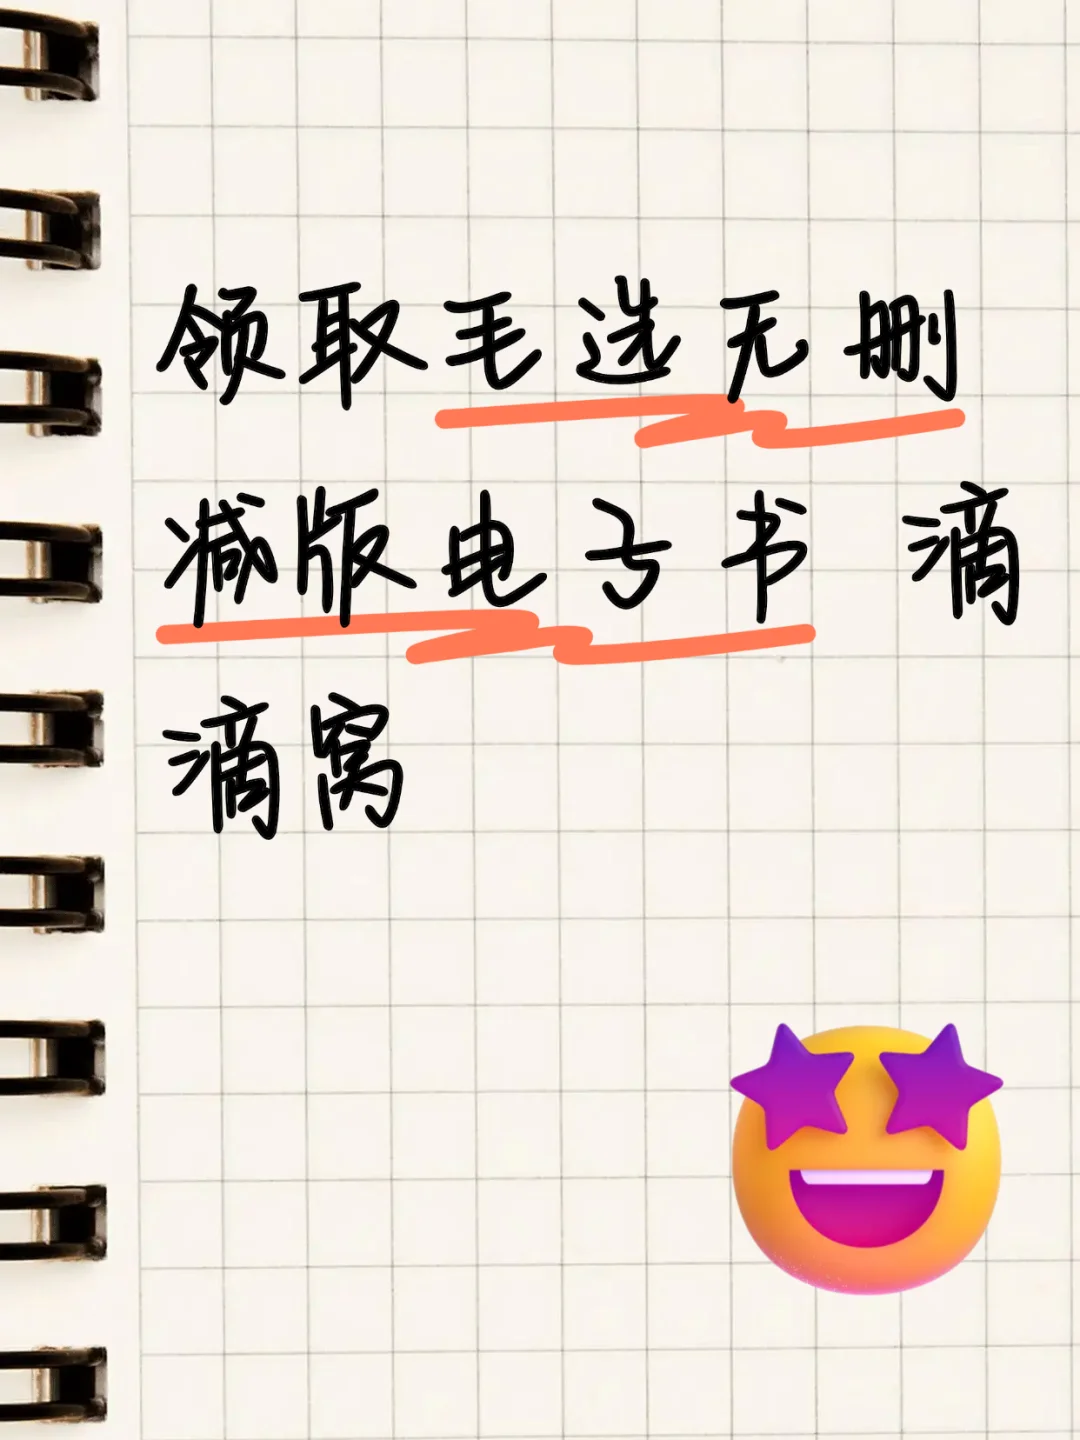 领取毛选无删
减版电子书 滴
滴窝